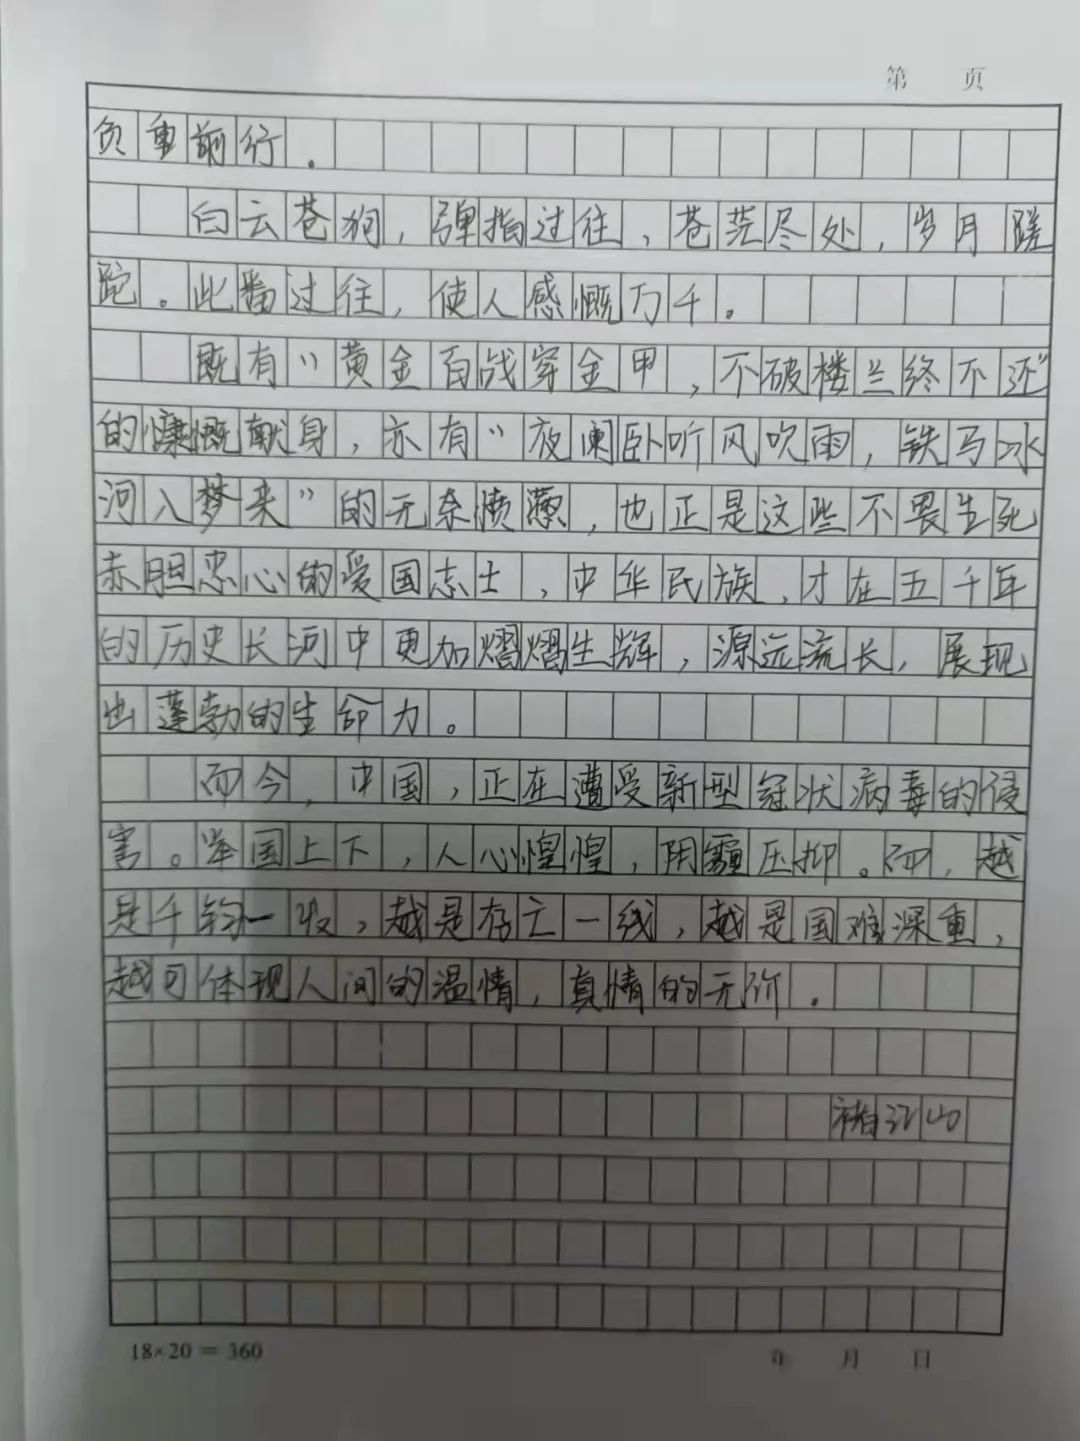 第 页
负重前行。
白云苍狗，弹指过往，苍茫尽处，岁月蹉
跎。此番过往，使人感慨万千。
既有“黄金百战穿金甲，不破楼兰终不还”
的慷慨献身，亦有“夜阑卧听风吹雨，铁马冰
河入梦来”的无奈愤懑，也正是这些不畏生死
赤胆忠心的爱国志士，中华民族，才在五千年
的历史长河中更加熠熠生辉，源远流长，展现
出蓬勃的生命力。
而今，中国，正在遭受新型冠状病毒的侵
害。举国上下，人心惶惶，阴霾压抑。而，越
是千钧一发，越是存亡一线，越是国难深重，
越可体现人间的温情，真情的无价。
褚江山
18×20＝360 年 月 日